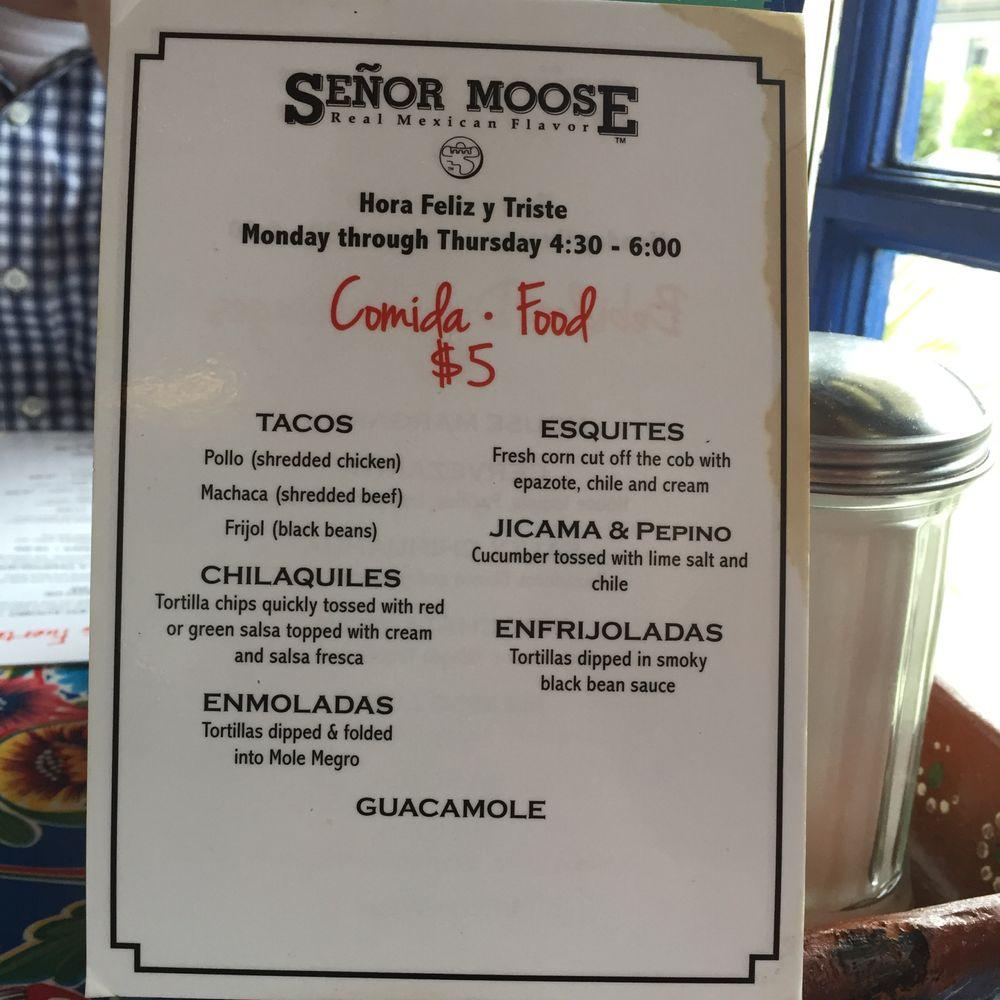 SEÑOR MOOSE
Real Mexican Flavor
TM
Hora Feliz y Triste
Monday through Thursday 4:30 - 6:00
Comida • Food
$5
TACOS
Pollo (shredded chicken)
Machaca (shredded beef)
Frijol (black beans)
CHILAQUILES
Tortilla chips quickly tossed with red
or green salsa topped with cream
and salsa fresca
ENMOLADAS
Tortillas dipped & folded
into Mole Megro
ESQUITES
Fresh corn cut off the cob with
epazote, chile and cream
JICAMA & PEPINO
Cucumber tossed with lime salt and
chile
ENFRIJOLADAS
Tortillas dipped in smoky
black bean sauce
GUACAMOLE